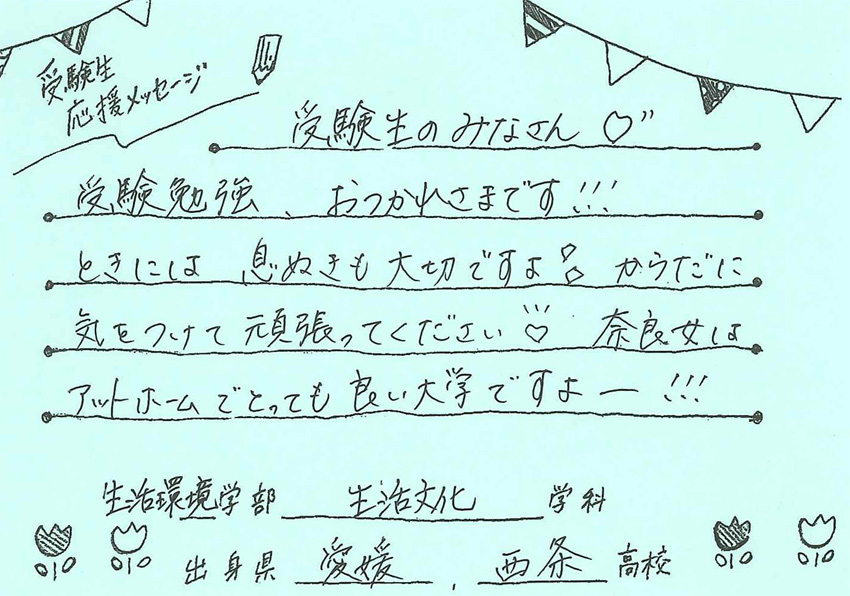 受験生
応援メッセージ
受験生のみなさん♡"
受験勉強、おつかれさまです!!!
ときには 息ぬきも大切ですよ からだに
気をつけて頑張ってください♡ 奈良女は
アットホームでとっても良い大学ですよー!!!
生活環境学部 生活文化 学科
出身県 愛媛, 西条 高校